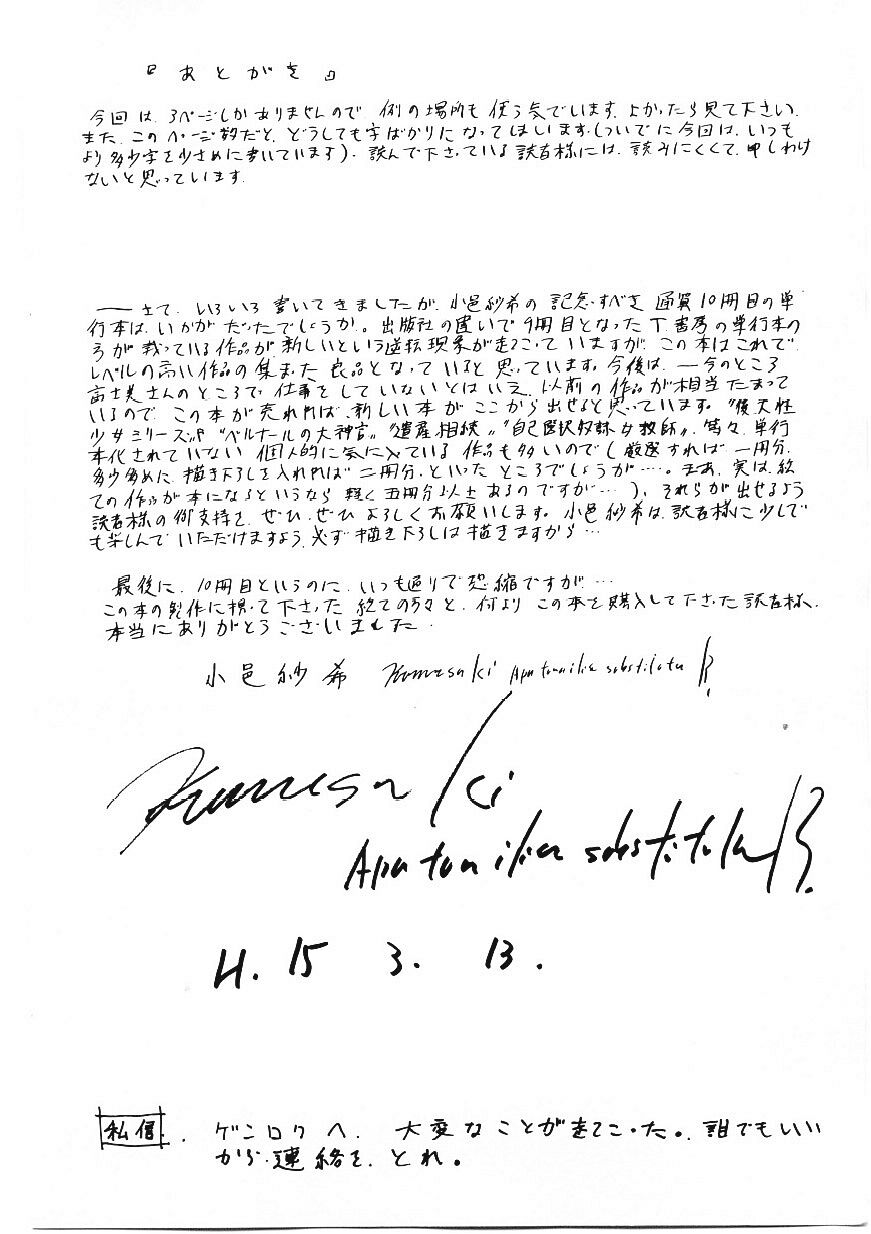 『あとがき』
今回は、3ページしかありませんので、例の場所も使う気でいます。よかったら見て下さい。
また、このページ数だと、どうしても字ばかりになってしまいます(ついでに今回は、いつも
より多少字を少さめに書いています)。読んで下さっている読者様には、読みにくくて、申しわけ
ないと思っています。
――さて、いろいろ書いてきましたが、小邑紗希の記念すべき通算10冊目の単
行本は、いかがだったでしょうか。出版社の違いで9冊目となったT書房の単行本の
方が載っている作品が新しいという逆転現象が起こっていますが、この本はこれで、
レベルの高い作品の集まった良品となっていると思っています。今後は、―今のところ
富士美さんのところで、仕事をしていないとはいえ、以前の作品が相当たまって
いるので、この本が売れれば、新しい本がここから出せると思っています。"後天性
少女シリーズ" "ベルナールの大神官" "遺産相続" "自己選択奴隷女教師"、等々、単行
本化されていない個人的に気に入っている作品も多いので(厳選すれば、一冊分、
多少多めに、描き下ろしを入れれば二冊分、といったところでしょうが…。まあ、実は、総
ての作品が本になるというなら軽く五冊分以上あるのですが…)、それらが出せるよう
読者様の御支持を、ぜひ、ぜひよろしくお願いします。小邑紗希は、読者様に少しで
も楽しんでいただけますよう、必ず描き下ろしは描きますから…
最後に、10冊目というのに、いつも通りで恐縮ですが…
この本の製作に携って下さった総ての方々と、何よりこの本を購入して下さった読者様、
本当にありがとうございました。
小邑紗希 Kumasaki Apatomilia substituta
Kumasaki
Apatomilia substituta
H. 15 3. 13.
私信. ゲンロクへ、大変なことが起こった。誰でもいい
から連絡を、とれ。